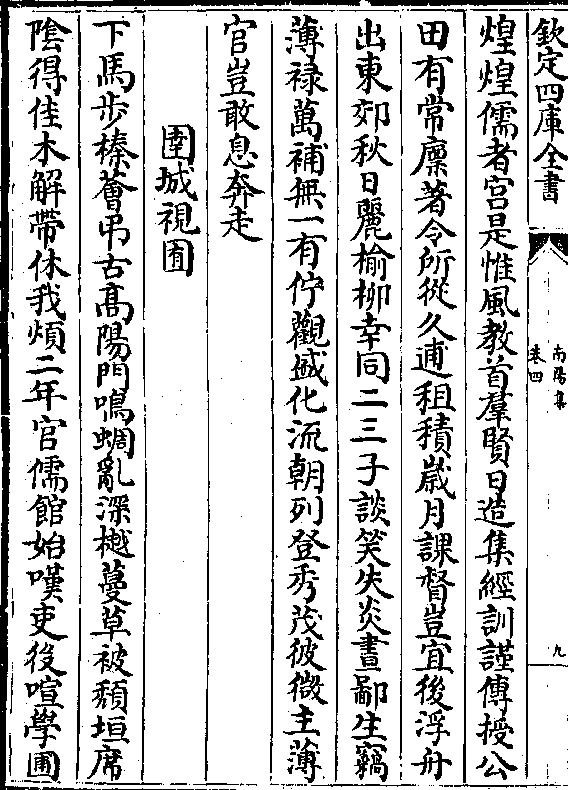 欽定四庫全書
南陽集
卷四
九
煌煌儒者宮是惟風教首羣賢日造集經訓謹傳授公
田有常廩著令所從久逋租積歲月課督豈宜後浮舟
出東郊秋日麗榆柳幸同二三子談笑失炎晝鄙生竊
薄祿萬補無一有佇觀盛化流朝列登秀茂彼微主薄
官豈敢息奔走
圉城視囿
下馬步榛薈弔古高陽門鳴蜩亂深樾蔓草被頹垣席
陰得佳木解帶休我煩二年官儒館始嘆吏後喧學圃